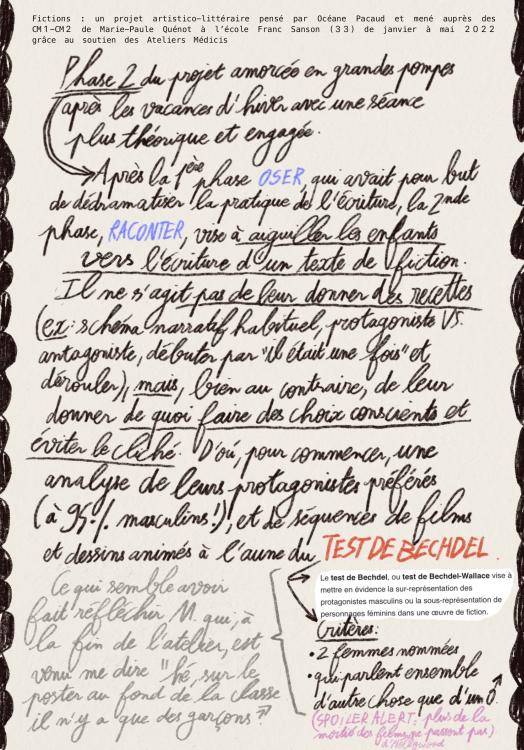 Fictions : un projet artistico-littéraire pensé par Océane Pacaud et mené auprès des
CM1-CM2 de Marie-Paule Quénot à l'école Franc Sanson (33) de janvier à mai 2022
grâce au soutien des Ateliers Médicis
Phase 2 du projet amorcée en grandes pompes
après les vacances d'hiver avec une séance
plus théorique et engagée.
Après la 1ère phase OSER, qui avait pour but
de dédramatiser la pratique de l'écriture, la 2nde
phase, RACONTER, vise à aiguiller les enfants
vers l'écriture d'un texte de fiction.
Il ne s'agit pas de leur donner des recettes
(ex : schéma narratif habituel, protagoniste VS.
antagoniste, débuter par "il était une fois" et
dérouler), mais, bien au contraire, de leur
donner de quoi faire des choix conscients et
éviter le cliché. D'où, pour commencer, une
analyse de leurs protagonistes préférés
(à 95% masculins !), et de séquences de films
et dessins animés à l'aune du TEST DE BECHDEL.
Ce qui semble avoir
fait réfléchir M. qui, à
la fin de l'atelier, est
venu me dire "hé, sur le
poster au fond de la classe
il n'y a que des garçons"
Le test de Bechdel, ou test de Bechdel-Wallace vise à
mettre en évidence la sur-représentation des
protagonistes masculins ou la sous-représentation de
personnages féminins dans une œuvre de fiction.
Critères :
• 2 femmes nommées
• qui parlent ensemble
d'autre chose que d'un ♂.
(SPOILER ALERT : plus de la
moitié des films ne passent pas)
d'Hollywood